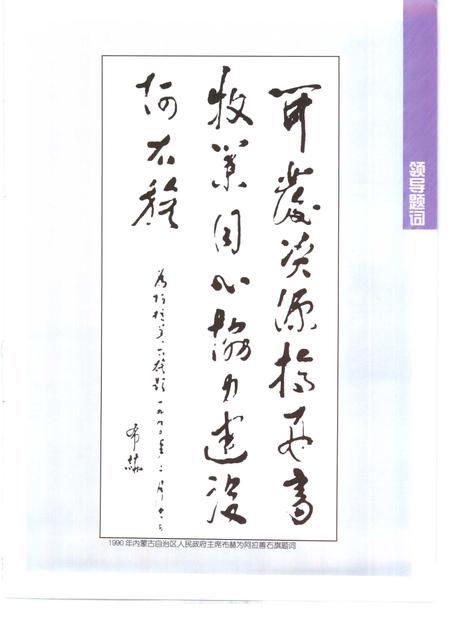 领导题词
開發资源搞好畜
牧業同心協力建设
阿右旗
为阿拉善右旗题 一九九〇年二月
布赫
1990 年内蒙古自治区人民政府主席布赫为阿拉善右旗题词